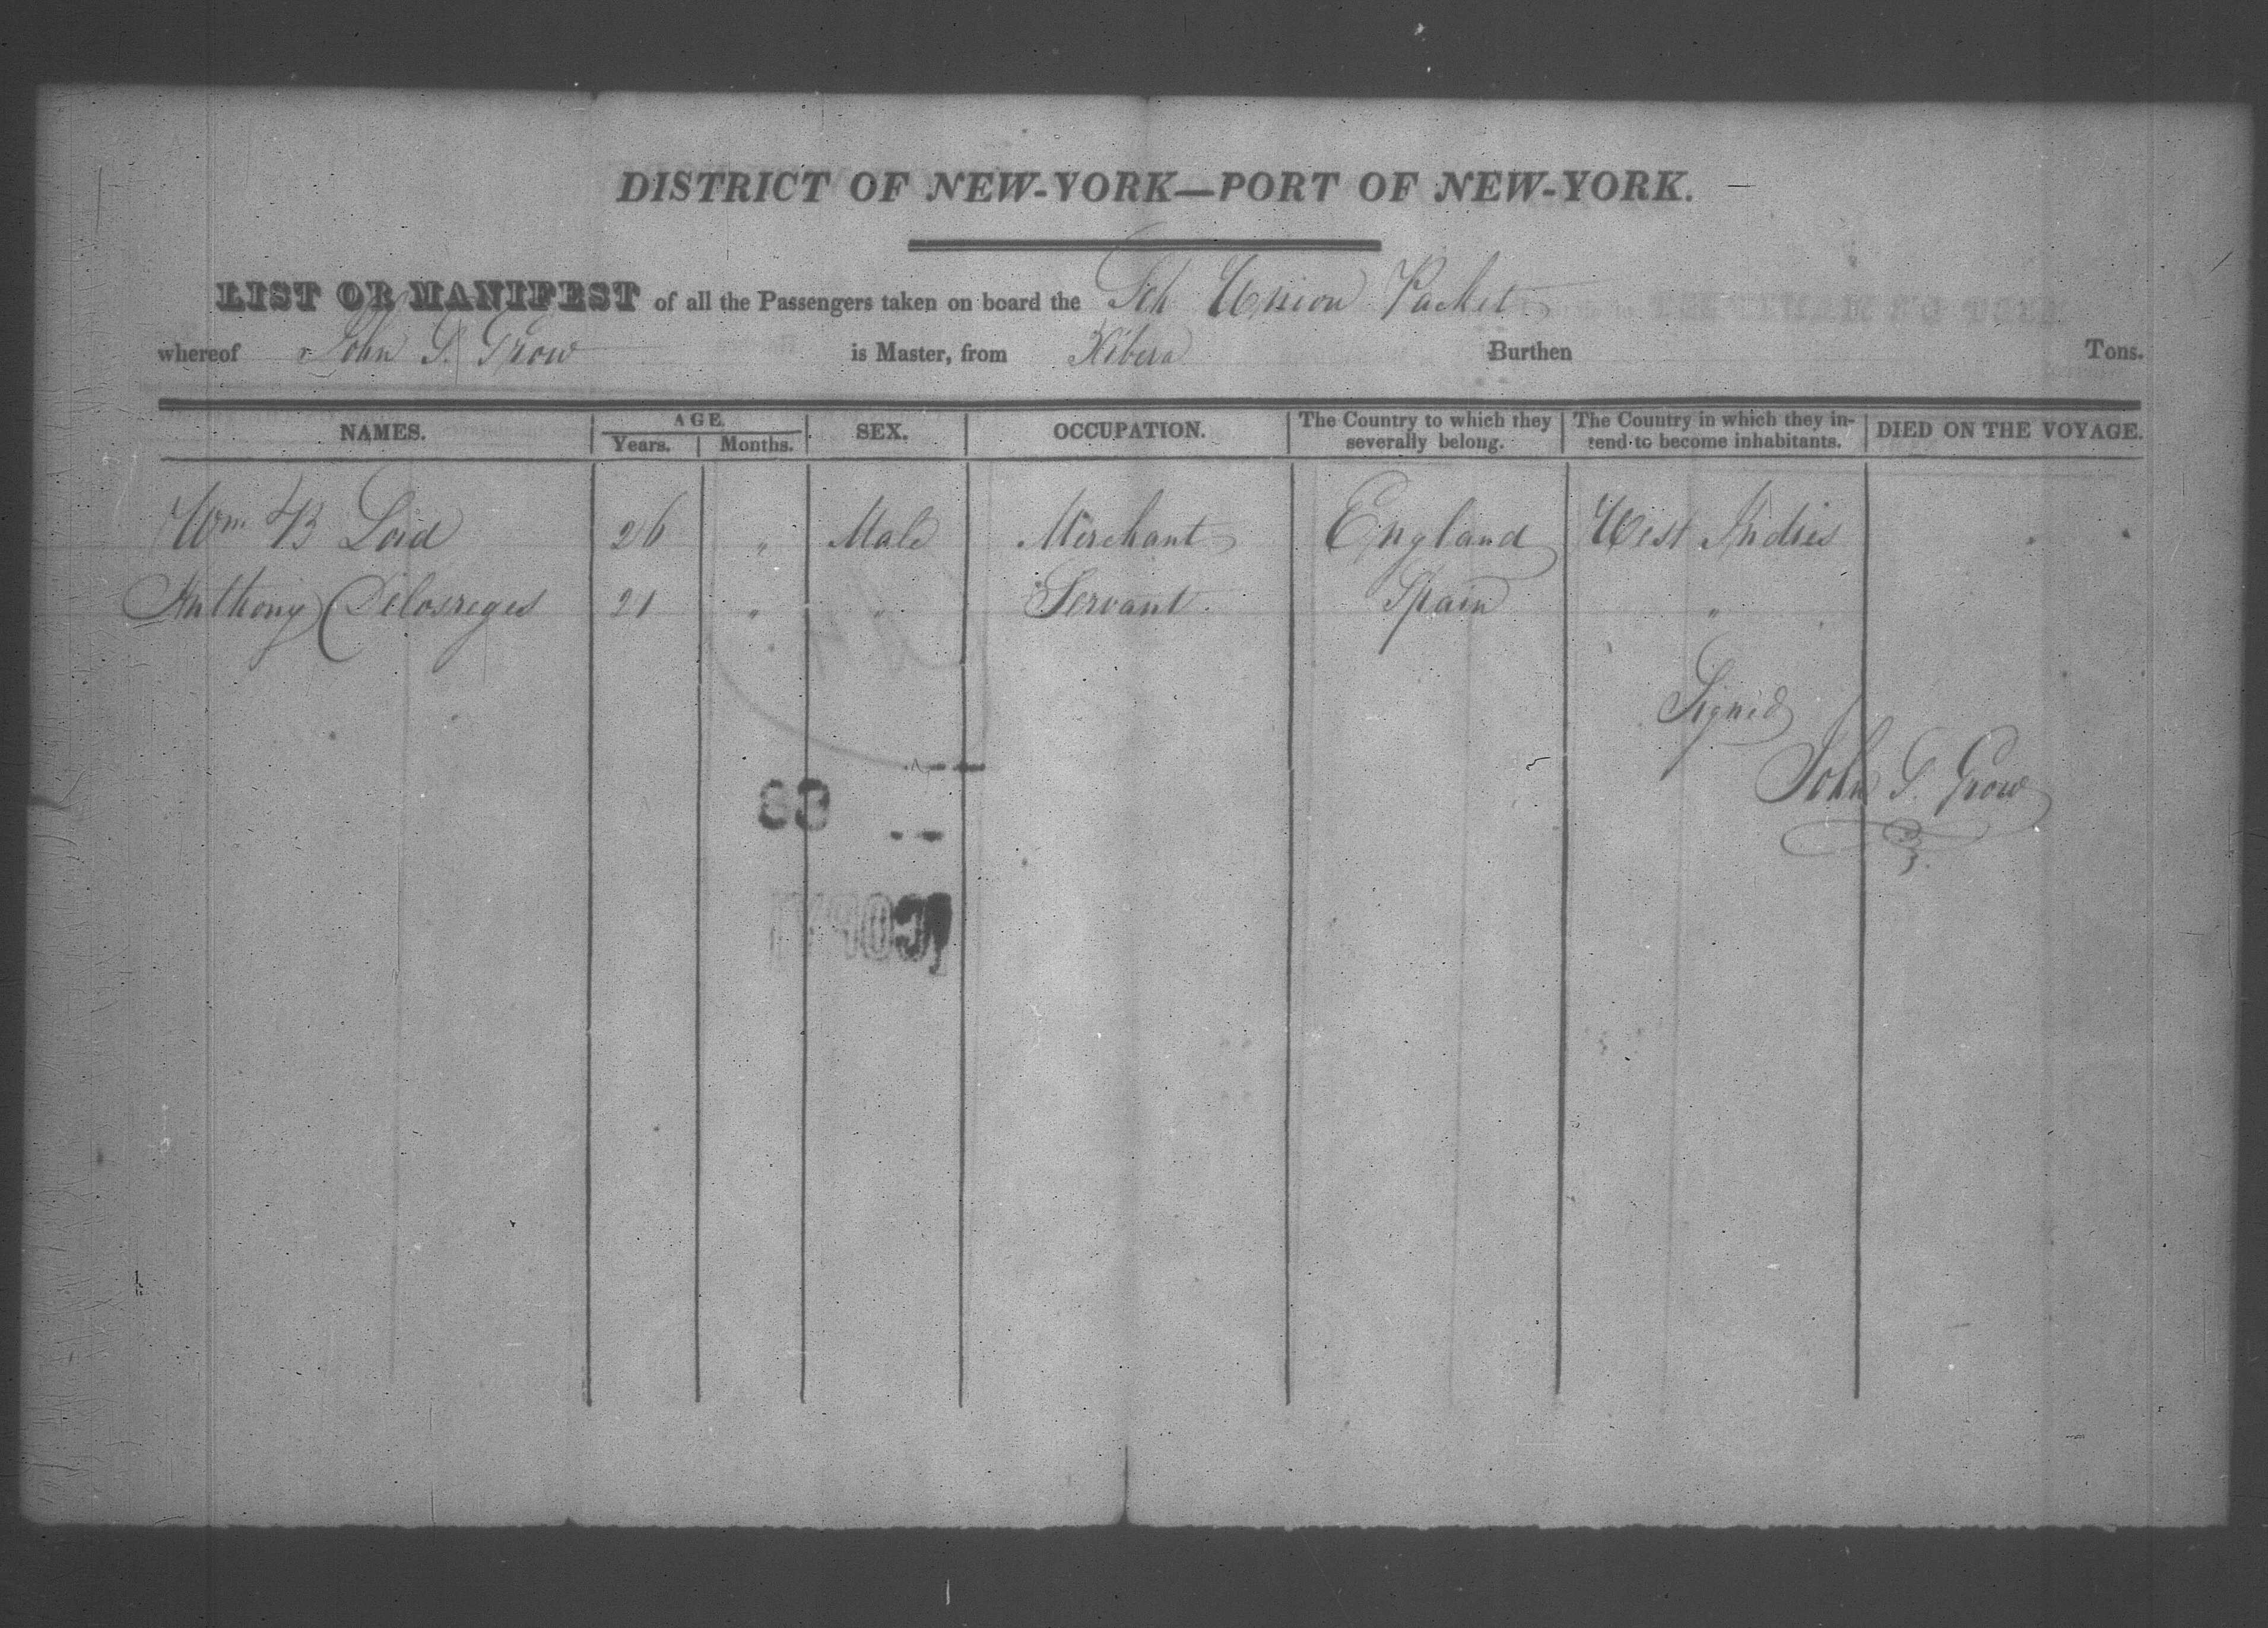 DISTRICT OF NEW-YORK—PORT OF NEW-YORK.
LIST OR MANIFEST of all the Passengers taken on board the Sch Union Packet
whereof John S. Grow is Master, from Xibera Burthen Tons.
NAMES. AGE. Years. Months. SEX. OCCUPATION. The Country to which they severally belong. The Country in which they intend to become inhabitants. DIED ON THE VOYAGE.
Wm B Lord 26 " Male Merchant England West Indies
Anthony Delosreges 21 " " Servant Spain "
Signed
John S. Grow
83
COPY